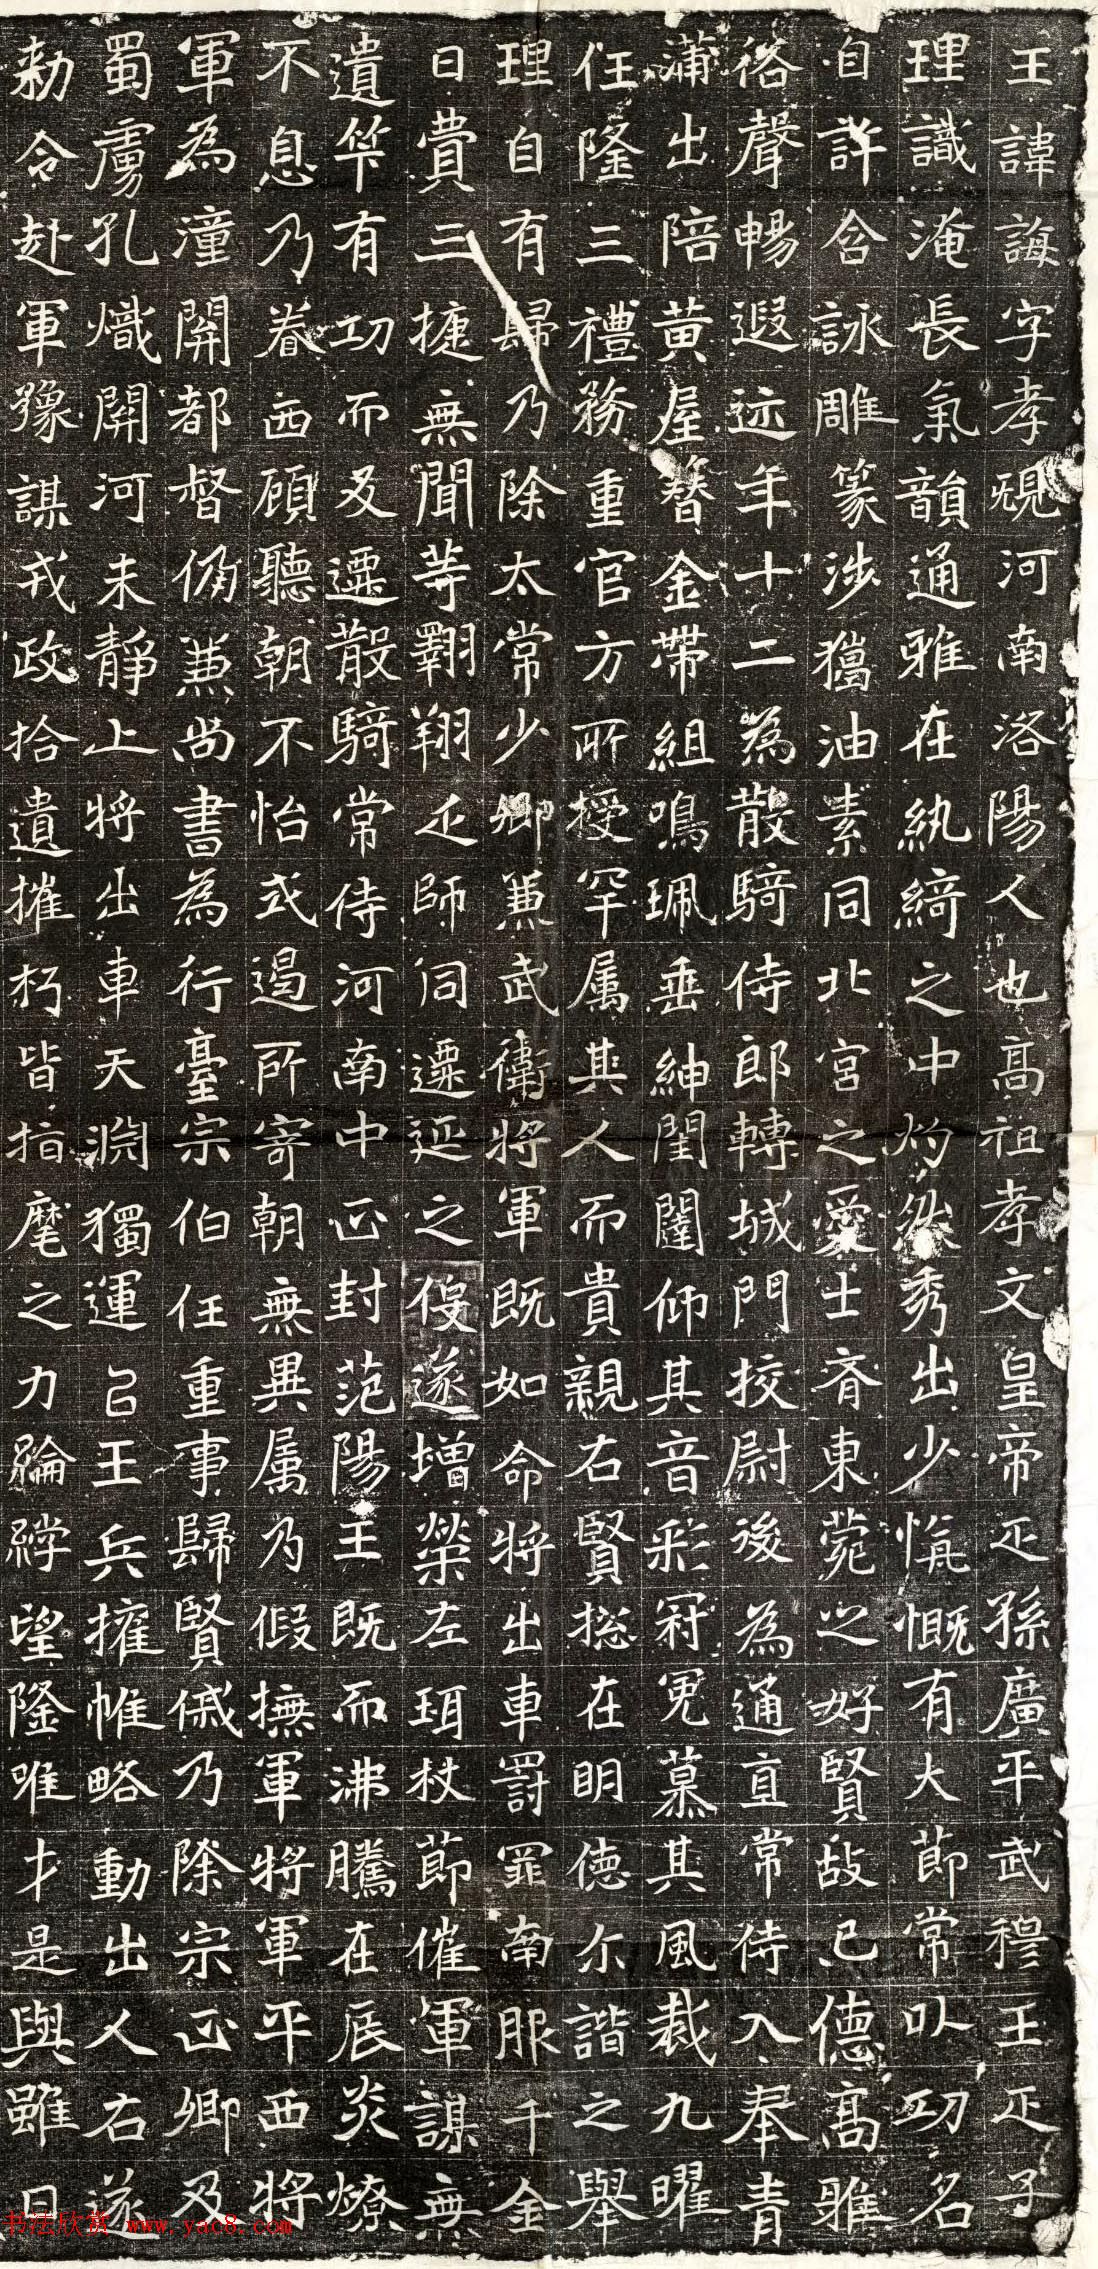 王諱誨字孝規河南洛陽人也高祖孝文皇帝疋孫廣平武穆王疋子
理識淹長氣韻通雅在紈綺之中灼然秀出少慷慨有大節常以功名
自許含詠雕篆涉獵油素同北宮之愛士齊東菀之好賢故已德高雅
俗聲暢遐迩年十二為散騎侍郎轉城門挍尉後為通直常侍入奉青
蒲出陪黃屋簪金帶組鳴珮垂紳閨闥仰其音彩冠冕慕其風裁九曜
任隆三禮務重官方所授罕属其人而貴親右賢揔在明德尒諧之舉
理自有歸乃除太常少卿兼武衛將軍既如命將出車罰罪南服千金
日費三捷無聞等翱翔之師同遷延之侵遂增榮左珥杖節催軍謀無
遺筭有功而反遷散騎常侍河南中正封范陽王既而沸騰在辰炎燎
不息乃眷西顧聽朝不怡式遏所寄朝無異属乃假撫軍將軍平西將
軍為潼關都督俻兼尚書為行臺宗伯任重事歸賢戚乃除宗正卿及
蜀虜孔熾關河未靜上將出車天淵獨運召王兵擁帷略動出人右遂
勑令赴軍豫謀戎政拾遺摧朽皆指麾之力綸綍望隆唯才是與雖日
书法欣赏 www.yac8.com